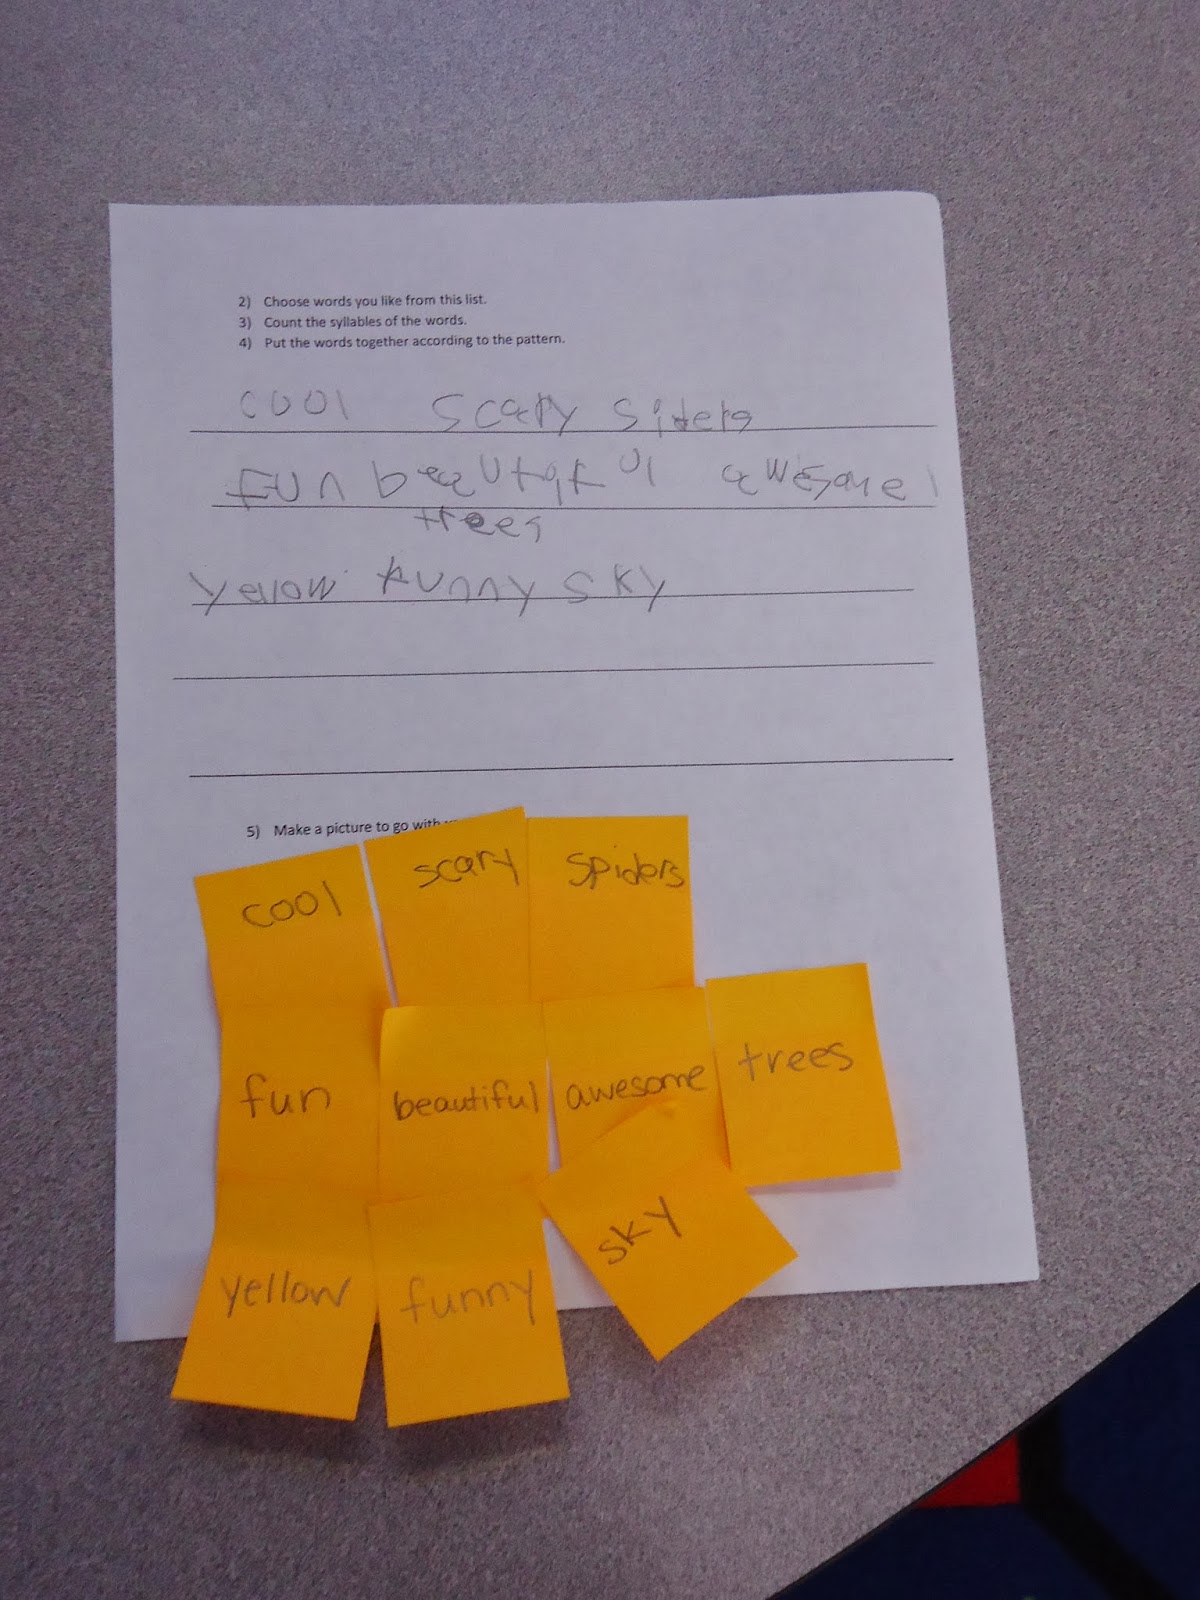 2) Choose words you like from this list.
3) Count the syllables of the words.
4) Put the words together according to the pattern.
cool scary siders
fun beautiful awesome
trees
yellow funny sky
5) Make a picture to go with
cool scary spiders
fun beautiful awesome trees
yellow funny sky